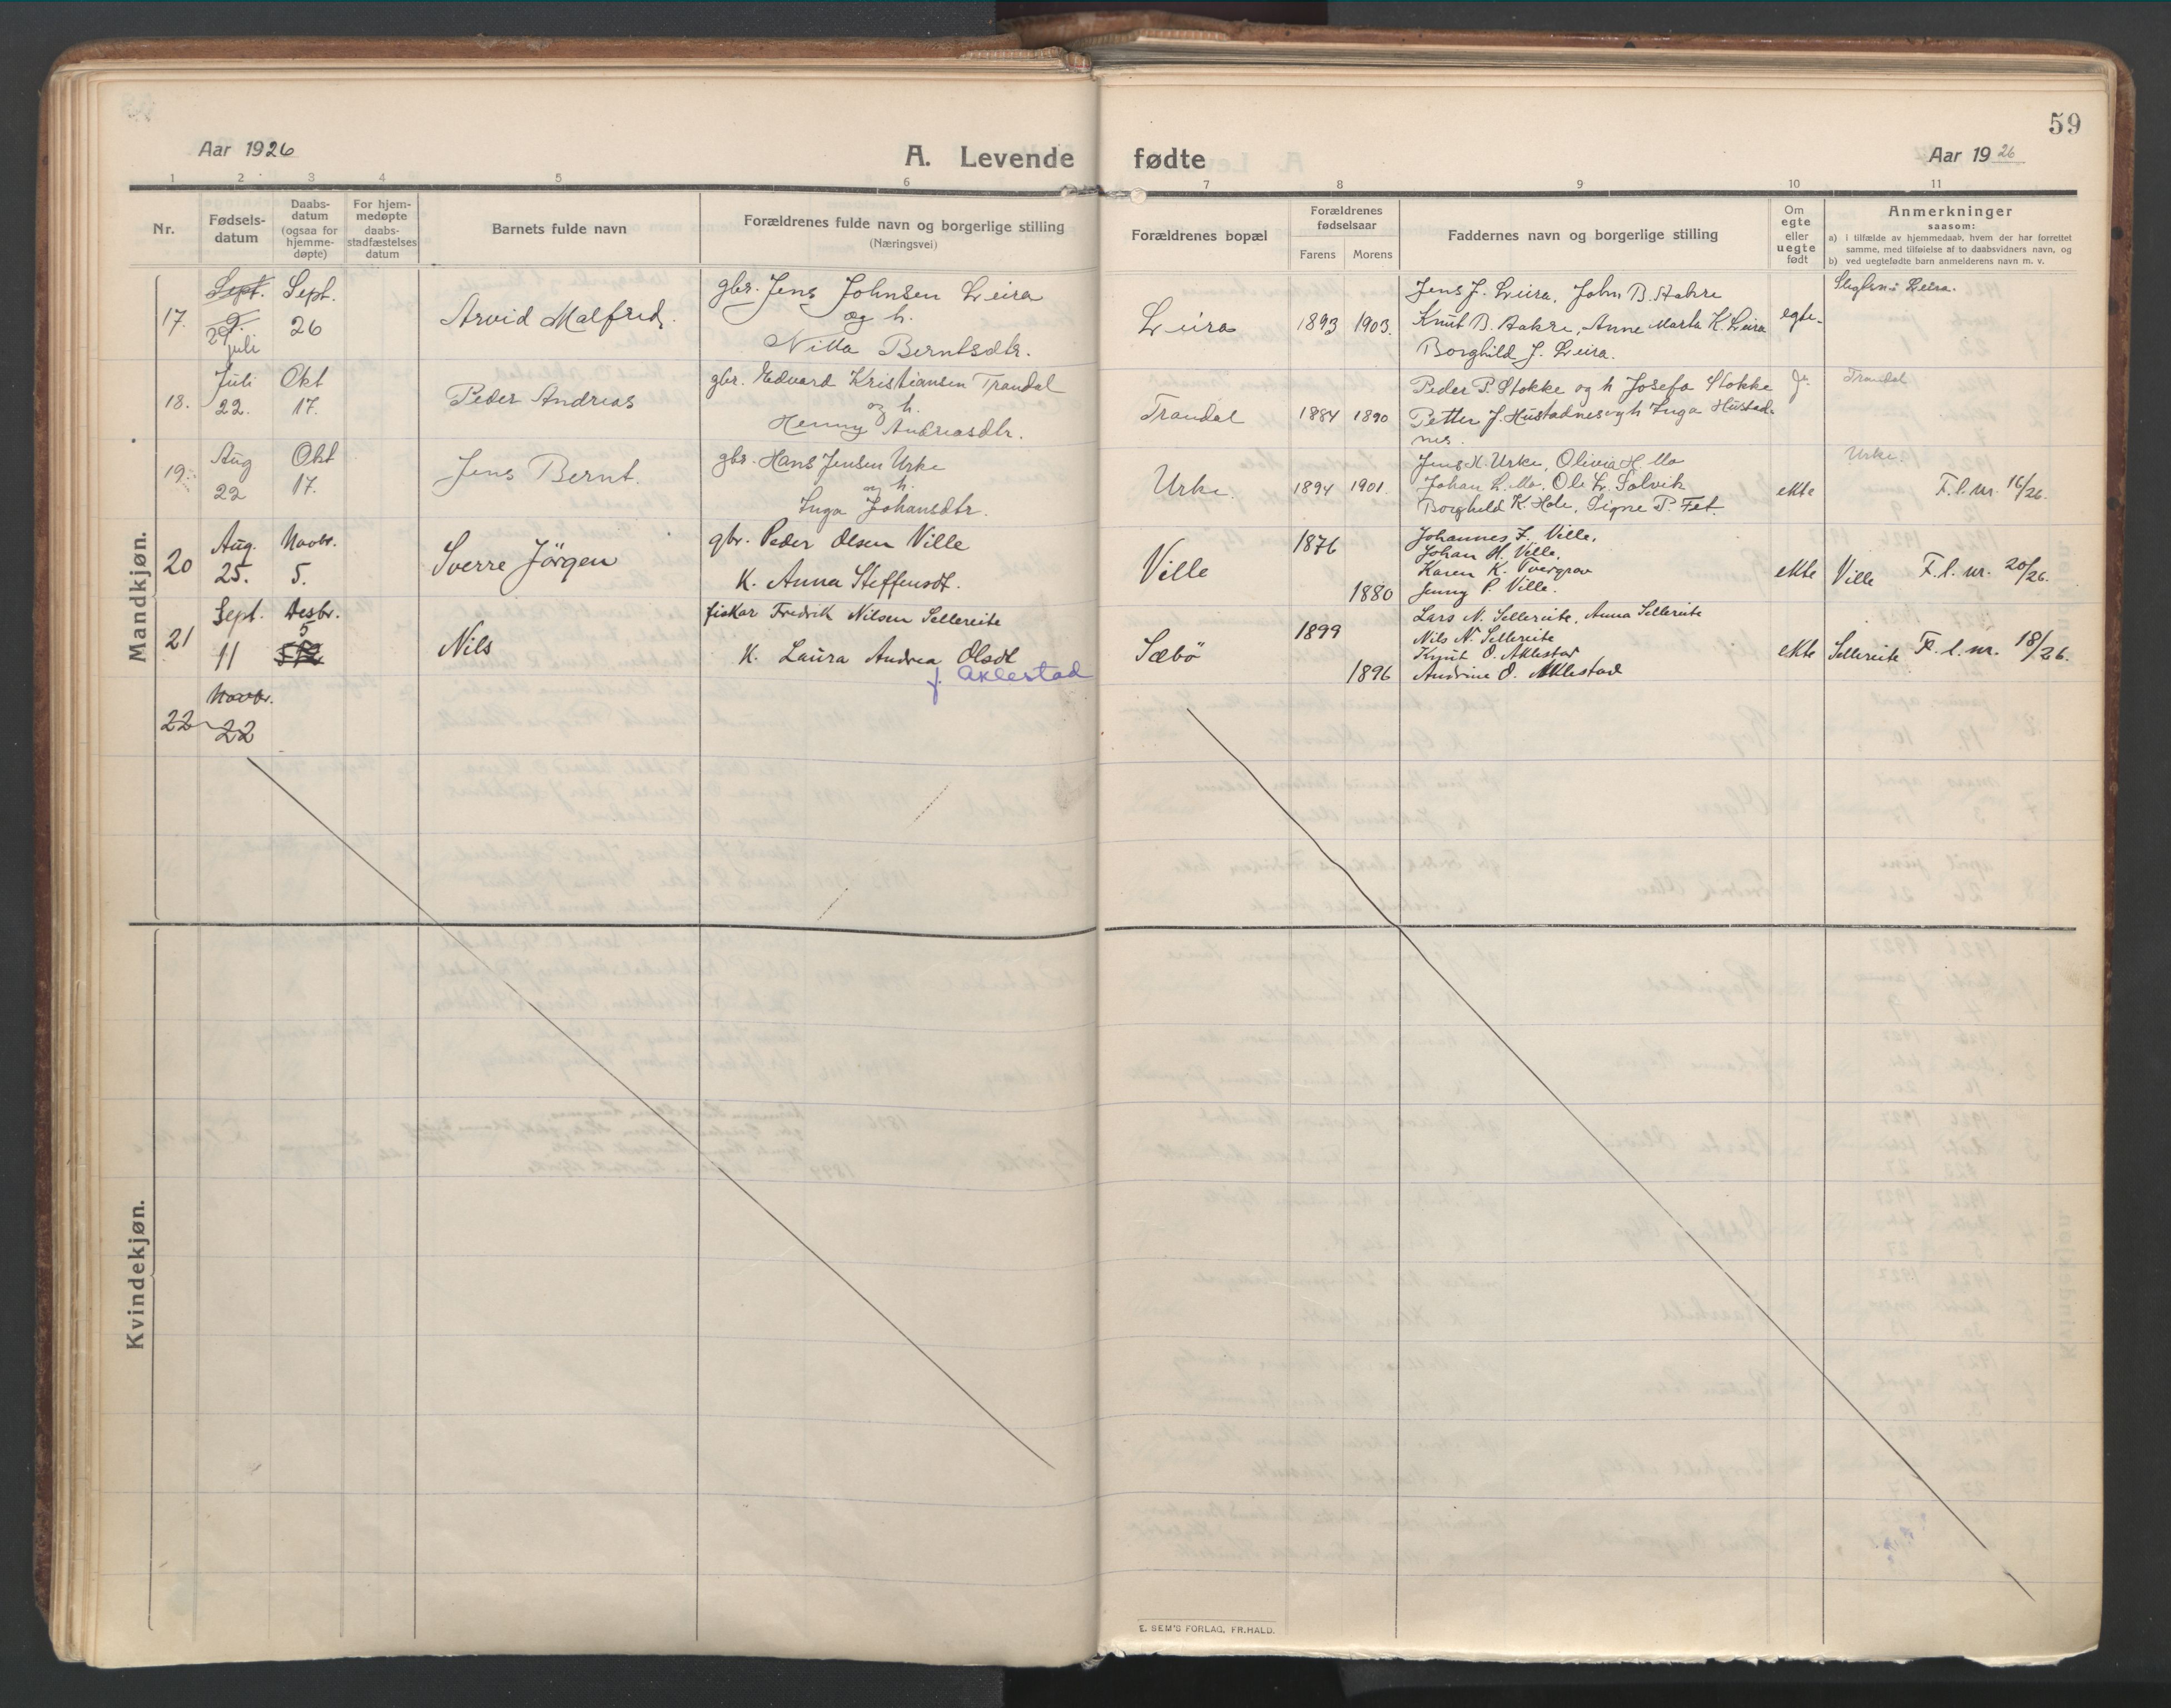 59
Aar 1926
A. Levende fødte
Aar 1926
1 2 3 4 5 6 7 8 9 10 11
Nr.
Fødsels-
datum
Daabs-
datum
(ogsaa for
hjemme-
døpte)
For hjem-
medøpte
daabs-
stadfæstelses
datum
Barnets fulde navn
Forældrenes fulde navn og borgerlige stilling
(Næringsvei)
Forældrenes bopæl
Forældrenes
fødselsaar
Farens Morens
Faddernes navn og borgerlige stilling
Om
egte
eller
uegte
født
Anmerkninger
saasom:
a) i tilfælde av hjemmedaab, hvem der har forrettet
samme, med tilføielse af to daabsvidners navn, og
b) ved uegtefødte barn anmelderens navn m. v.
Mandkjøn.
17.
Sept.
29.
juli
Sept.
26
Arvid Malfred.
gbr. Jens Johnsen Leira
og h.
Berntsdtr.
Leira
1893 1903.
Jens J. Leira, John B. Aakre
Knut B. Aakre, Anne Marta K. Leira
Borghild J. Leira.
egte.
Leira.
18.
Juli
22.
Okt
17.
Peder Andreas
gbr. Edvard Kristiansen Trandal
og h.
Henny Andreasdtr.
Trandal
1884 1890
Peder P. Stokke og h Josefa Stokke
Petter J. Hustadnes og h Inga Hustad-
nes.
Trandal
19.
Aug
22
Okt
17.
Jens Bernt.
gbr. Hans Jensen Urke
og h.
Inga Johansdtr.
Urke.
1894 1901.
Jens K. Urke, Olivia H. Mo
Johan L. Mo, Ole L. Solvik
Borghild K. Hole, Signe P. Fet.
ekte
Urke.
F.l. nr. 16/26.
20
Aug.
25.
Novbr.
5.
Sverre Jörgen
gbr. Peder Olsen Ville
K. Anna Steffensdt.
Ville
1876
1880
Johannes J. Ville.
Johan H. Ville.
Karen K. Tvergrov
Jenny P. Ville.
ekte
Ville
F. l. nr. 20/26.
21
Sept.
11
Desbr.
5
Nils
fiskar Fredrik Nilsen Sellereite
K. Laura Andrea Olsdt
f. Aklestad
Sæbö
1899
1896
Lars N. Sellereite, Anna Sellereite
Nils N. Sellereite
Knut O. Aklestad
Andrine O. Aklestad
ekte
Sellereite
F. l. nr. 18/26.
22
Novbr.
22
Kvindekjøn.
E. SEM'S FORLAG, FR.HALD.